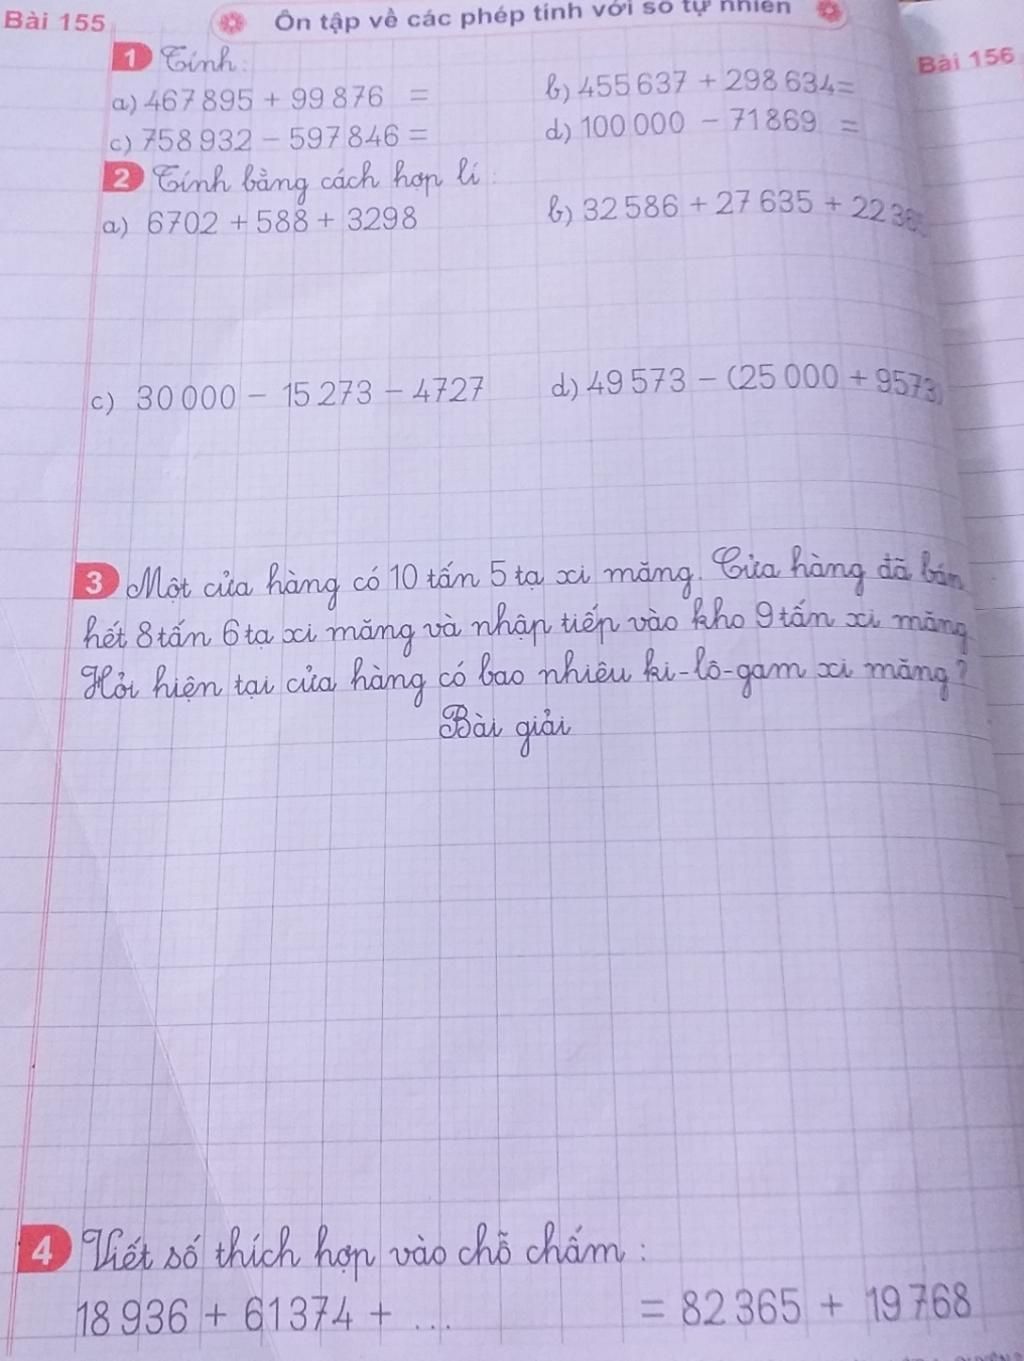 Bài 155
Ôn tập về các phép tính với số tự nhiên
Bài 156
1 Tính:
a) 467 895 + 99 876 =
b) 455 637 + 298 634 =
c) 758 932 - 597 846 =
d) 100 000 - 71 869 =
2 Tính bằng cách hợp lí:
a) 6702 + 588 + 3298
b) 32 586 + 27 635 + 
c) 30 000 - 15 273 - 4727
d) 49 573 - (25 000 + 9573)
3 Một cửa hàng có 10 tấn 5 tạ xi măng. Cửa hàng đã bán
hết 8 tấn 6 tạ xi măng và nhập tiếp vào kho 9 tấn xi măng
Hỏi hiện tại cửa hàng có bao nhiêu ki-lô-gam xi măng?
Bài giải
4 Viết số thích hợp vào chỗ chấm:
18 936 + 61 374 + ... = 82 365 + 19 768